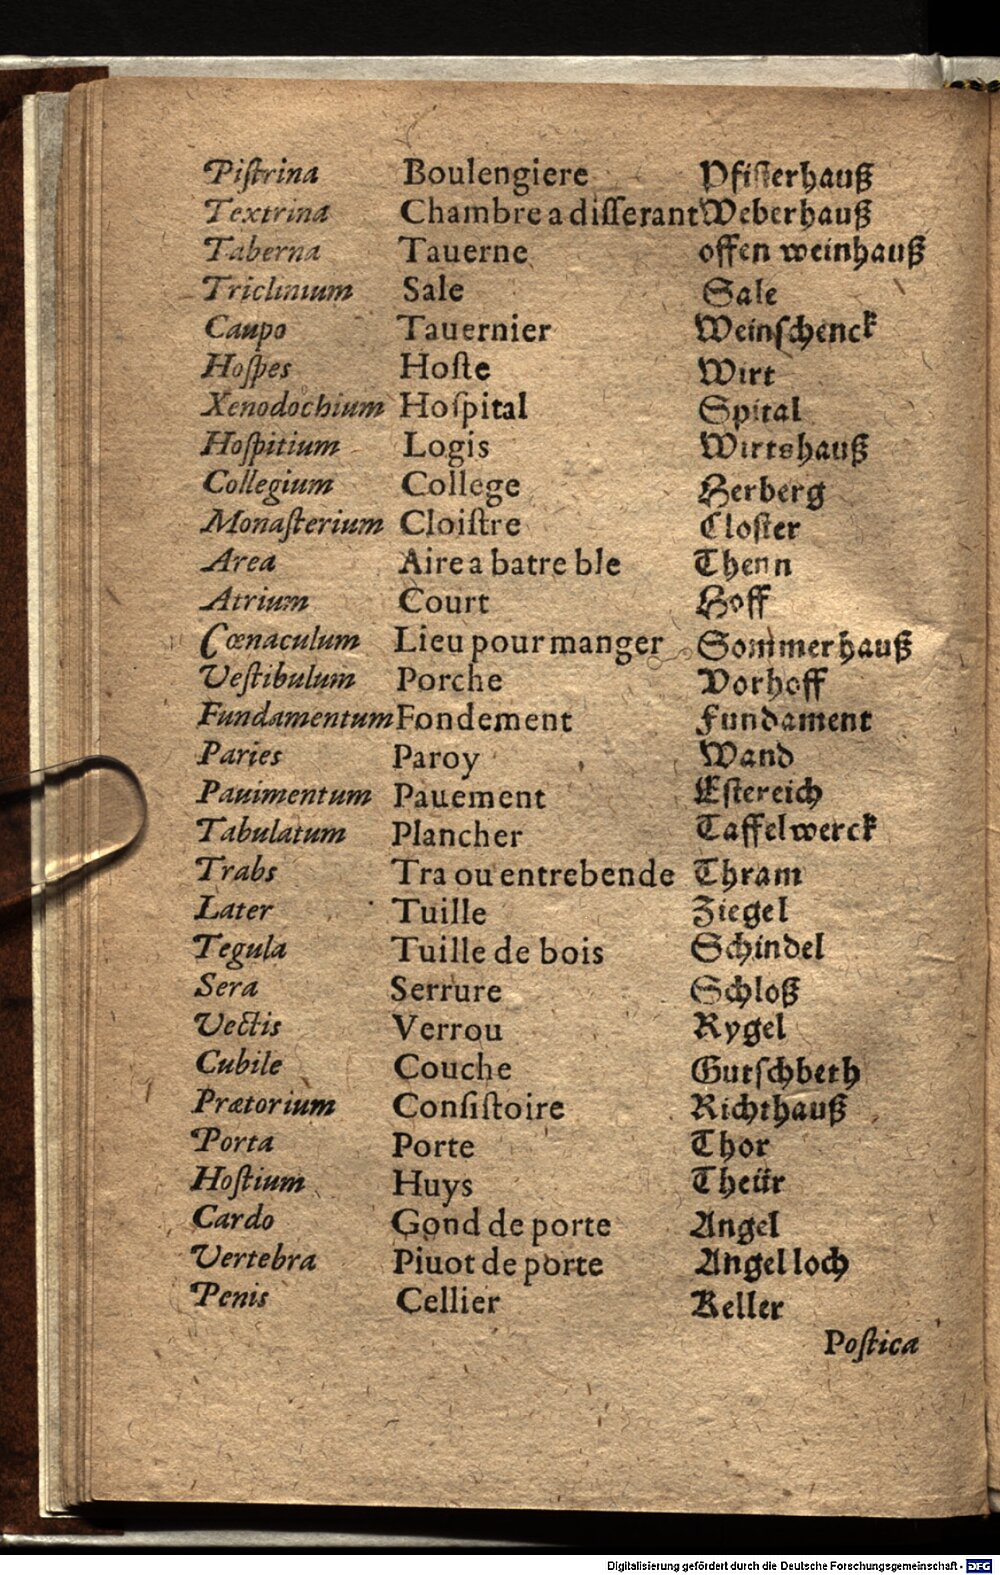 Piſtrina Boulengiere Pfiſterhauß
Textrina Chambre a diſſerant Weberhauß
Taberna Tauerne offen weinhauß
Triclinium Sale Sale
Caupo Tauernier Weinſchenck
Hoſpes Hoſte Wirt
Xenodochium Hoſpital Spital
Hoſpitium Logis Wirtshauß
Collegium College Herberg
Monaſterium Cloiſtre Cloſter
Area Aire a batre ble Thenn
Atrium Court Hoff
Cœnaculum Lieu pour manger Sommerhauß
Veſtibulum Porche Vorhoff
Fundamentum Fondement Fundament
Paries Paroy Wand
Pauimentum Pauement Eſtereich
Tabulatum Plancher Taffelwerck
Trabs Tra ou entrebende Thram
Later Tuille Ziegel
Tegula Tuille de bois Schindel
Sera Serrure Schloß
Vectis Verrou Rygel
Cubile Couche Gutſchbeth
Prætorium Conſiſtoire Richthauß
Porta Porte Thor
Hoſtium Huys Theür
Cardo Gond de porte Angel
Vertebra Piuot de porte Angel loch
Penis Cellier Keller
Poſtica
Digitalisierung gefördert durch die Deutsche Forschungsgemeinschaft - DFG